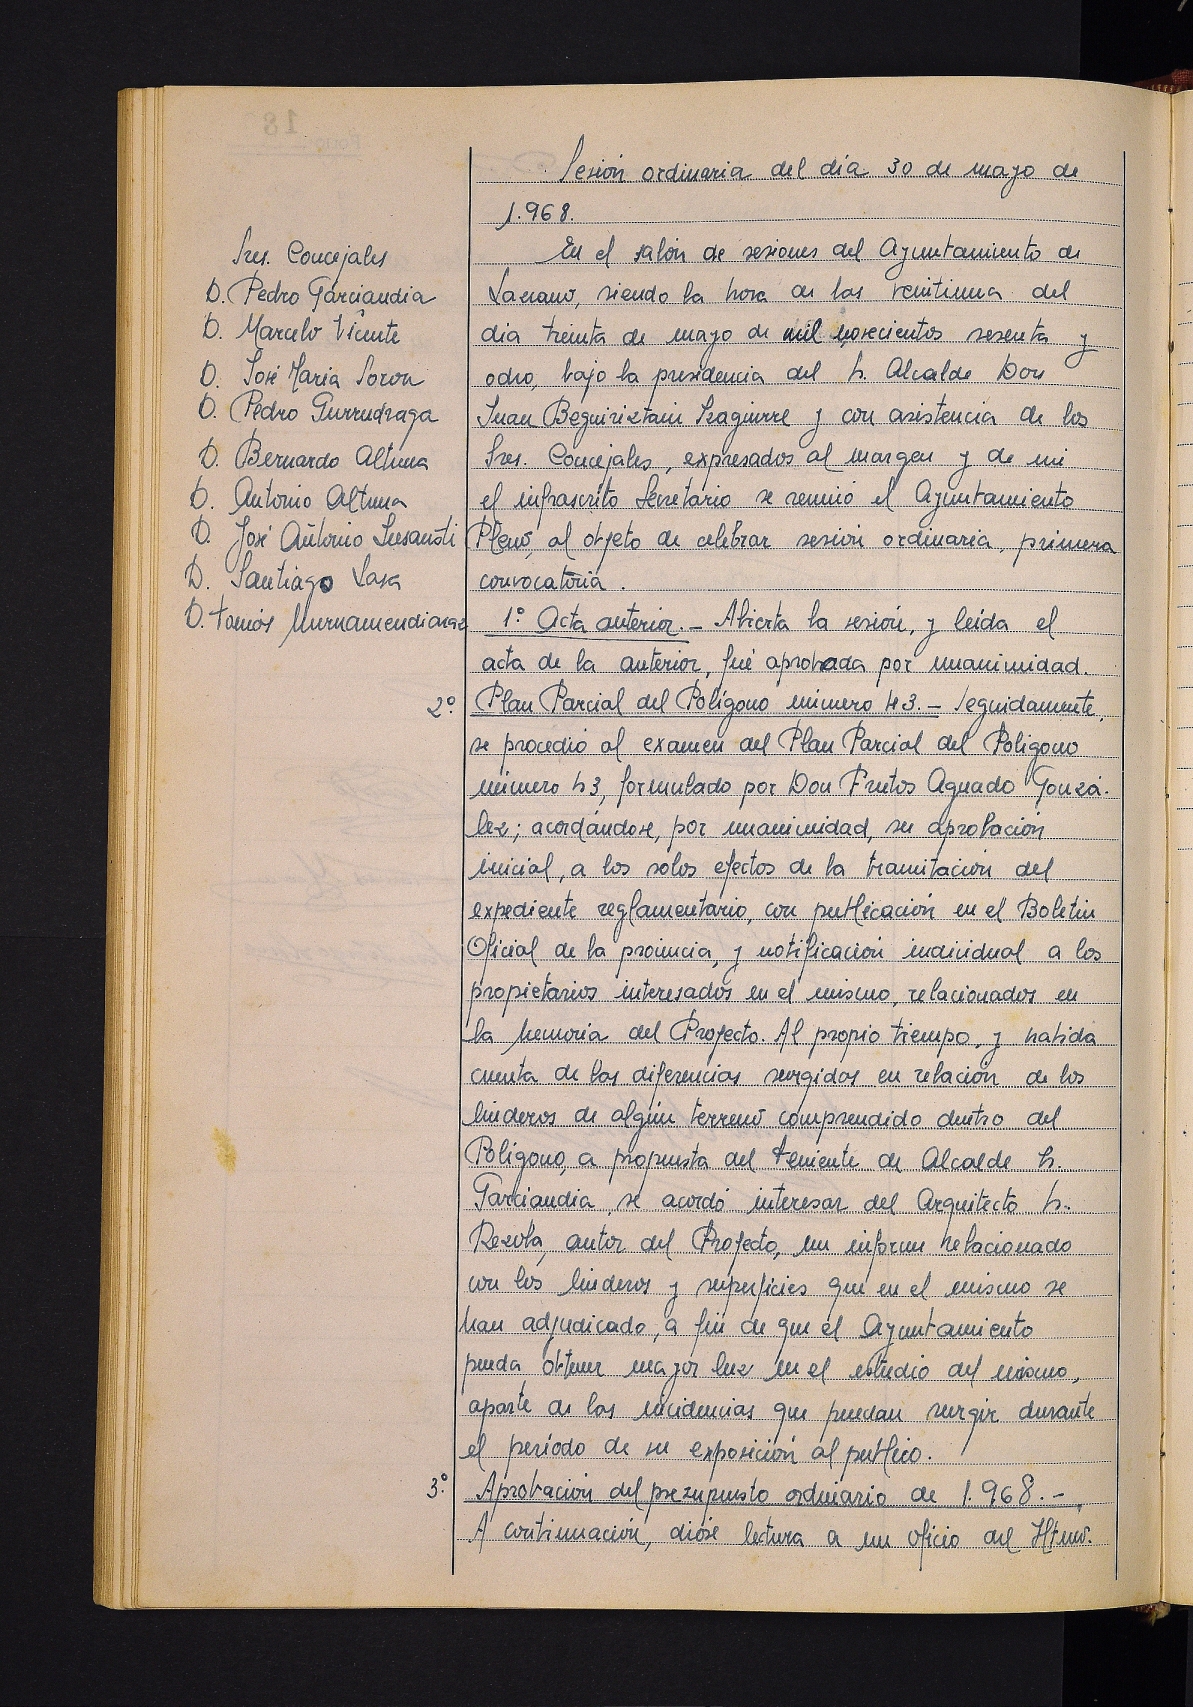 Sesión ordinaria del día 30 de mayo de
1.968.
Sres. Concejales
D. Pedro Garciandia
D. Marcelo Vicente
D. José Maria Soroa
D. Pedro Gurrudzaga
D. Bernardo Altuna
D. Antonio Altuna
D. José Antonio Insausti
D. Santiago Lasa
D. Tomás Murnamendiaraz
En el salón de sesiones del Ayuntamiento de
Lazcano, siendo la hora de las veintiuna del
día treinta de mayo de mil novecientos sesenta y
ocho, bajo la presidencia del Sr. Alcalde Don
Juan Beguiristain Izaguirre y con asistencia de los
Sres. Concejales, expresados al margen y de mi
el infrascrito Secretario se reunió el Ayuntamiento
Pleno, al objeto de celebrar sesión ordinaria, primera
convocatoria.
1º Acta anterior.- Abierta la sesión, y leída el
acta de la anterior, fué aprobada por unanimidad.
2º. Plan Parcial del Polígono número 43.- Seguidamente,
se procedió al examen del Plan Parcial del Polígono
número 43, formulado por Don Frutos Aguado Gonzá-
lez; acordándose, por unanimidad, su aprobación
inicial, a los solos efectos de la tramitación del
expediente reglamentario, con publicación en el Boletin
Oficial de la provincia, y notificación individual a los
propietarios interesados en el mismo, relacionados en
la Memoria del Proyecto. Al propio tiempo, y habida
cuenta de las diferencias surgidas en relación de los
linderos de algún terreno comprendido dentro del
Polígono, a propuesta del Teniente de Alcalde Sr.
Garciandia, se acordó interesar del Arquitecto Sr.
Rezola, autor del Proyecto, un informe relacionado
con los linderos y superficies que en el mismo se
han adjudicado, a fin de que el Ayuntamiento
pueda obtener mayor luz en el estudio del mismo,
aparte de las incidencias que puedan surgir durante
el período de su exposición al publico.
3º. Aprobación del presupuesto ordinario de 1.968.-
A continuación, dióse lectura a un oficio del Iltmo.